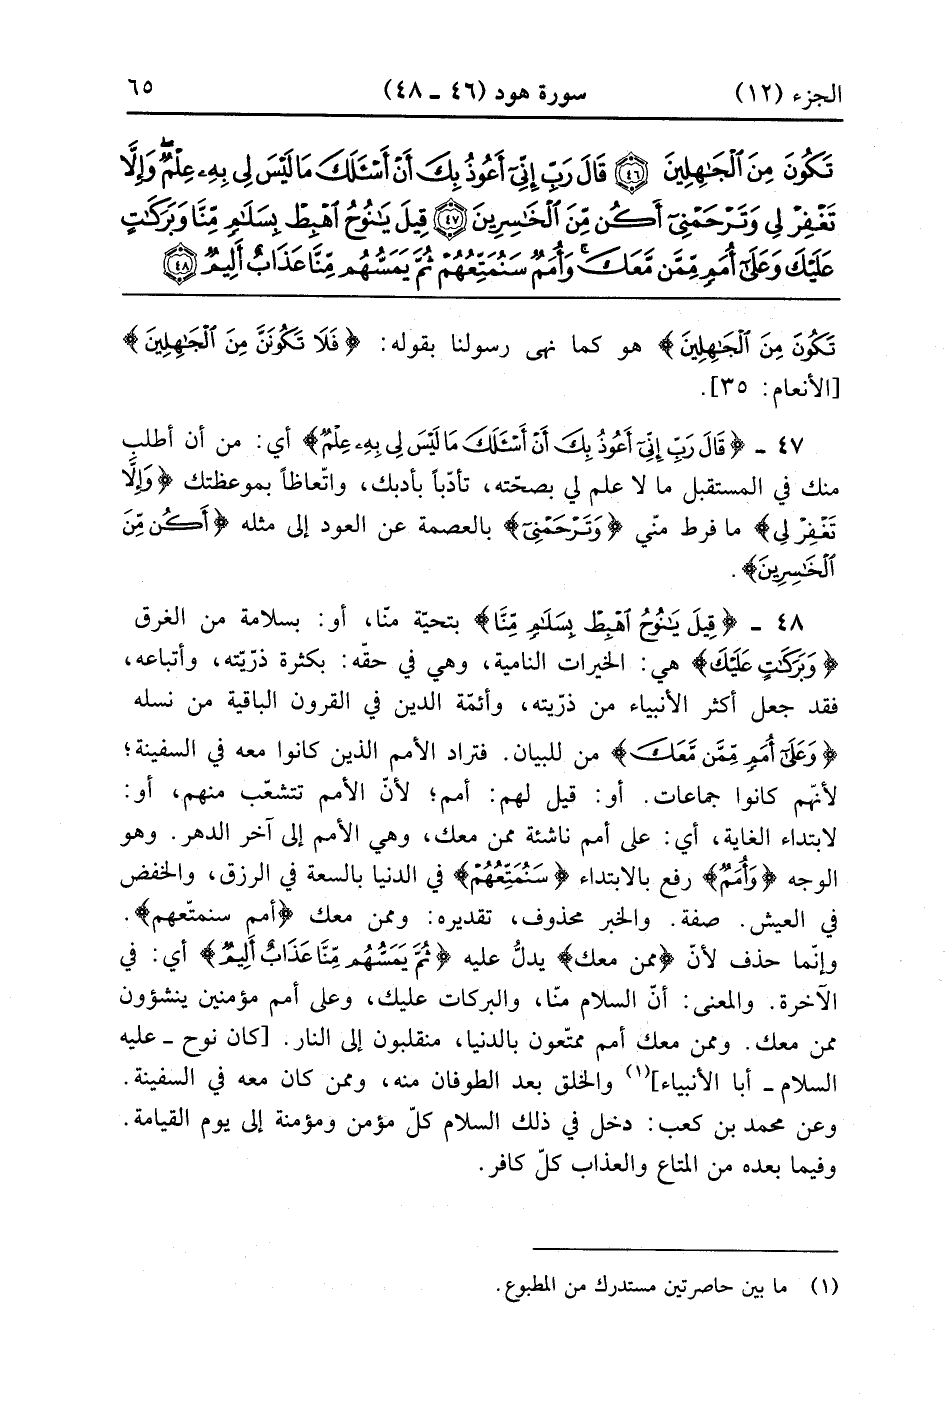 الجزء (١٢) سورة هود (٤٦ ـ ٤٨) ٦٥
تَكُونَ مِنَ ٱلْجَٰهِلِينَ ٤٦ قَالَ رَبِّ إِنِّىٓ أَعُوذُ بِكَ أَنْ أَسْـَٔلَكَ مَا لَيْسَ لِى بِهِۦ عِلْمٌۖ وَإِلَّا
تَغْفِرْ لِى وَتَرْحَمْنِىٓ أَكُن مِّنَ ٱلْخَٰسِرِينَ ٤٧ قِيلَ يَٰنُوحُ ٱهْبِطْ بِسَلَٰمٍ مِّنَّا وَبَرَكَٰتٍ
عَلَيْكَ وَعَلَىٰٓ أُمَمٍ مِّمَّن مَّعَكَۚ وَأُمَمٌ سَنُمَتِّعُهُمْ ثُمَّ يَمَسُّهُم مِّنَّا عَذَابٌ أَلِيمٌ ٤٨
تَكُونَ مِنَ ٱلْجَٰهِلِينَ﴾ هو كما نهى رسولنا بقوله: ﴿فَلَا تَكُونَنَّ مِنَ ٱلْجَٰهِلِينَ﴾
[الأنعام: ٣٥].
٤٧ ـ ﴿قَالَ رَبِّ إِنِّىٓ أَعُوذُ بِكَ أَنْ أَسْـَٔلَكَ مَا لَيْسَ لِى بِهِۦ عِلْمٌ﴾ أي: من أن أطلب
منك في المستقبل ما لا علم لي بصحّته، تأدّباً بأدبك، واتّعاظاً بموعظتك ﴿وَإِلَّا
تَغْفِرْ لِى﴾ ما فرط منّي ﴿وَتَرْحَمْنِىٓ﴾ بالعصمة عن العود إلى مثله ﴿أَكُن مِّنَ
ٱلْخَٰسِرِينَ﴾.
٤٨ ـ ﴿قِيلَ يَٰنُوحُ ٱهْبِطْ بِسَلَٰمٍ مِّنَّا﴾ بتحيّة منّا، أو: بسلامة من الغرق
﴿وَبَرَكَٰتٍ عَلَيْكَ﴾ هي: الخيرات النامية، وهي في حقّه: بكثرة ذرّيّته، وأتباعه،
فقد جعل أكثر الأنبياء من ذرّيته، وأئمّة الدين في القرون الباقية من نسله
﴿وَعَلَىٰٓ أُمَمٍ مِّمَّن مَّعَكَ﴾ من للبيان. فتراد الأمم الذين كانوا معه في السفينة؛
لأنهّم كانوا جماعات. أو: قيل لهم: أمم؛ لأنّ الأمم تتشعّب منهم، أو:
لابتداء الغاية، أي: على أمم ناشئة ممن معك، وهي الأمم إلى آخر الدهر. وهو
الوجه ﴿وَأُمَمٌ﴾ رفع بالابتداء ﴿سَنُمَتِّعُهُمْ﴾ في الدنيا بالسعة في الرزق، والخفض
في العيش. صفة. والخبر محذوف، تقديره: وممن معك ﴿أمم سنمتّعهم﴾.
وإنّما حذف لأنّ ﴿ممن معك﴾ يدلُّ عليه ﴿ثُمَّ يَمَسُّهُم مِّنَّا عَذَابٌ أَلِيمٌ﴾ أي: في
الآخرة. والمعنى: أنّ السلام منّا، والبركات عليك، وعلى أمم مؤمنين ينشؤون
ممن معك. وممن معك أمم ممتّعون بالدنيا، منقلبون إلى النار. [كان نوح ـ عليه
السلام ـ أبا الأنبياء](١) والخلق بعد الطوفان منه، وممن كان معه في السفينة.
وعن محمد بن كعب: دخل في ذلك السلام كلّ مؤمن ومؤمنة إلى يوم القيامة.
وفيما بعده من المتاع والعذاب كلّ كافر.
(١) ما بين حاصرتين مستدرك من المطبوع.